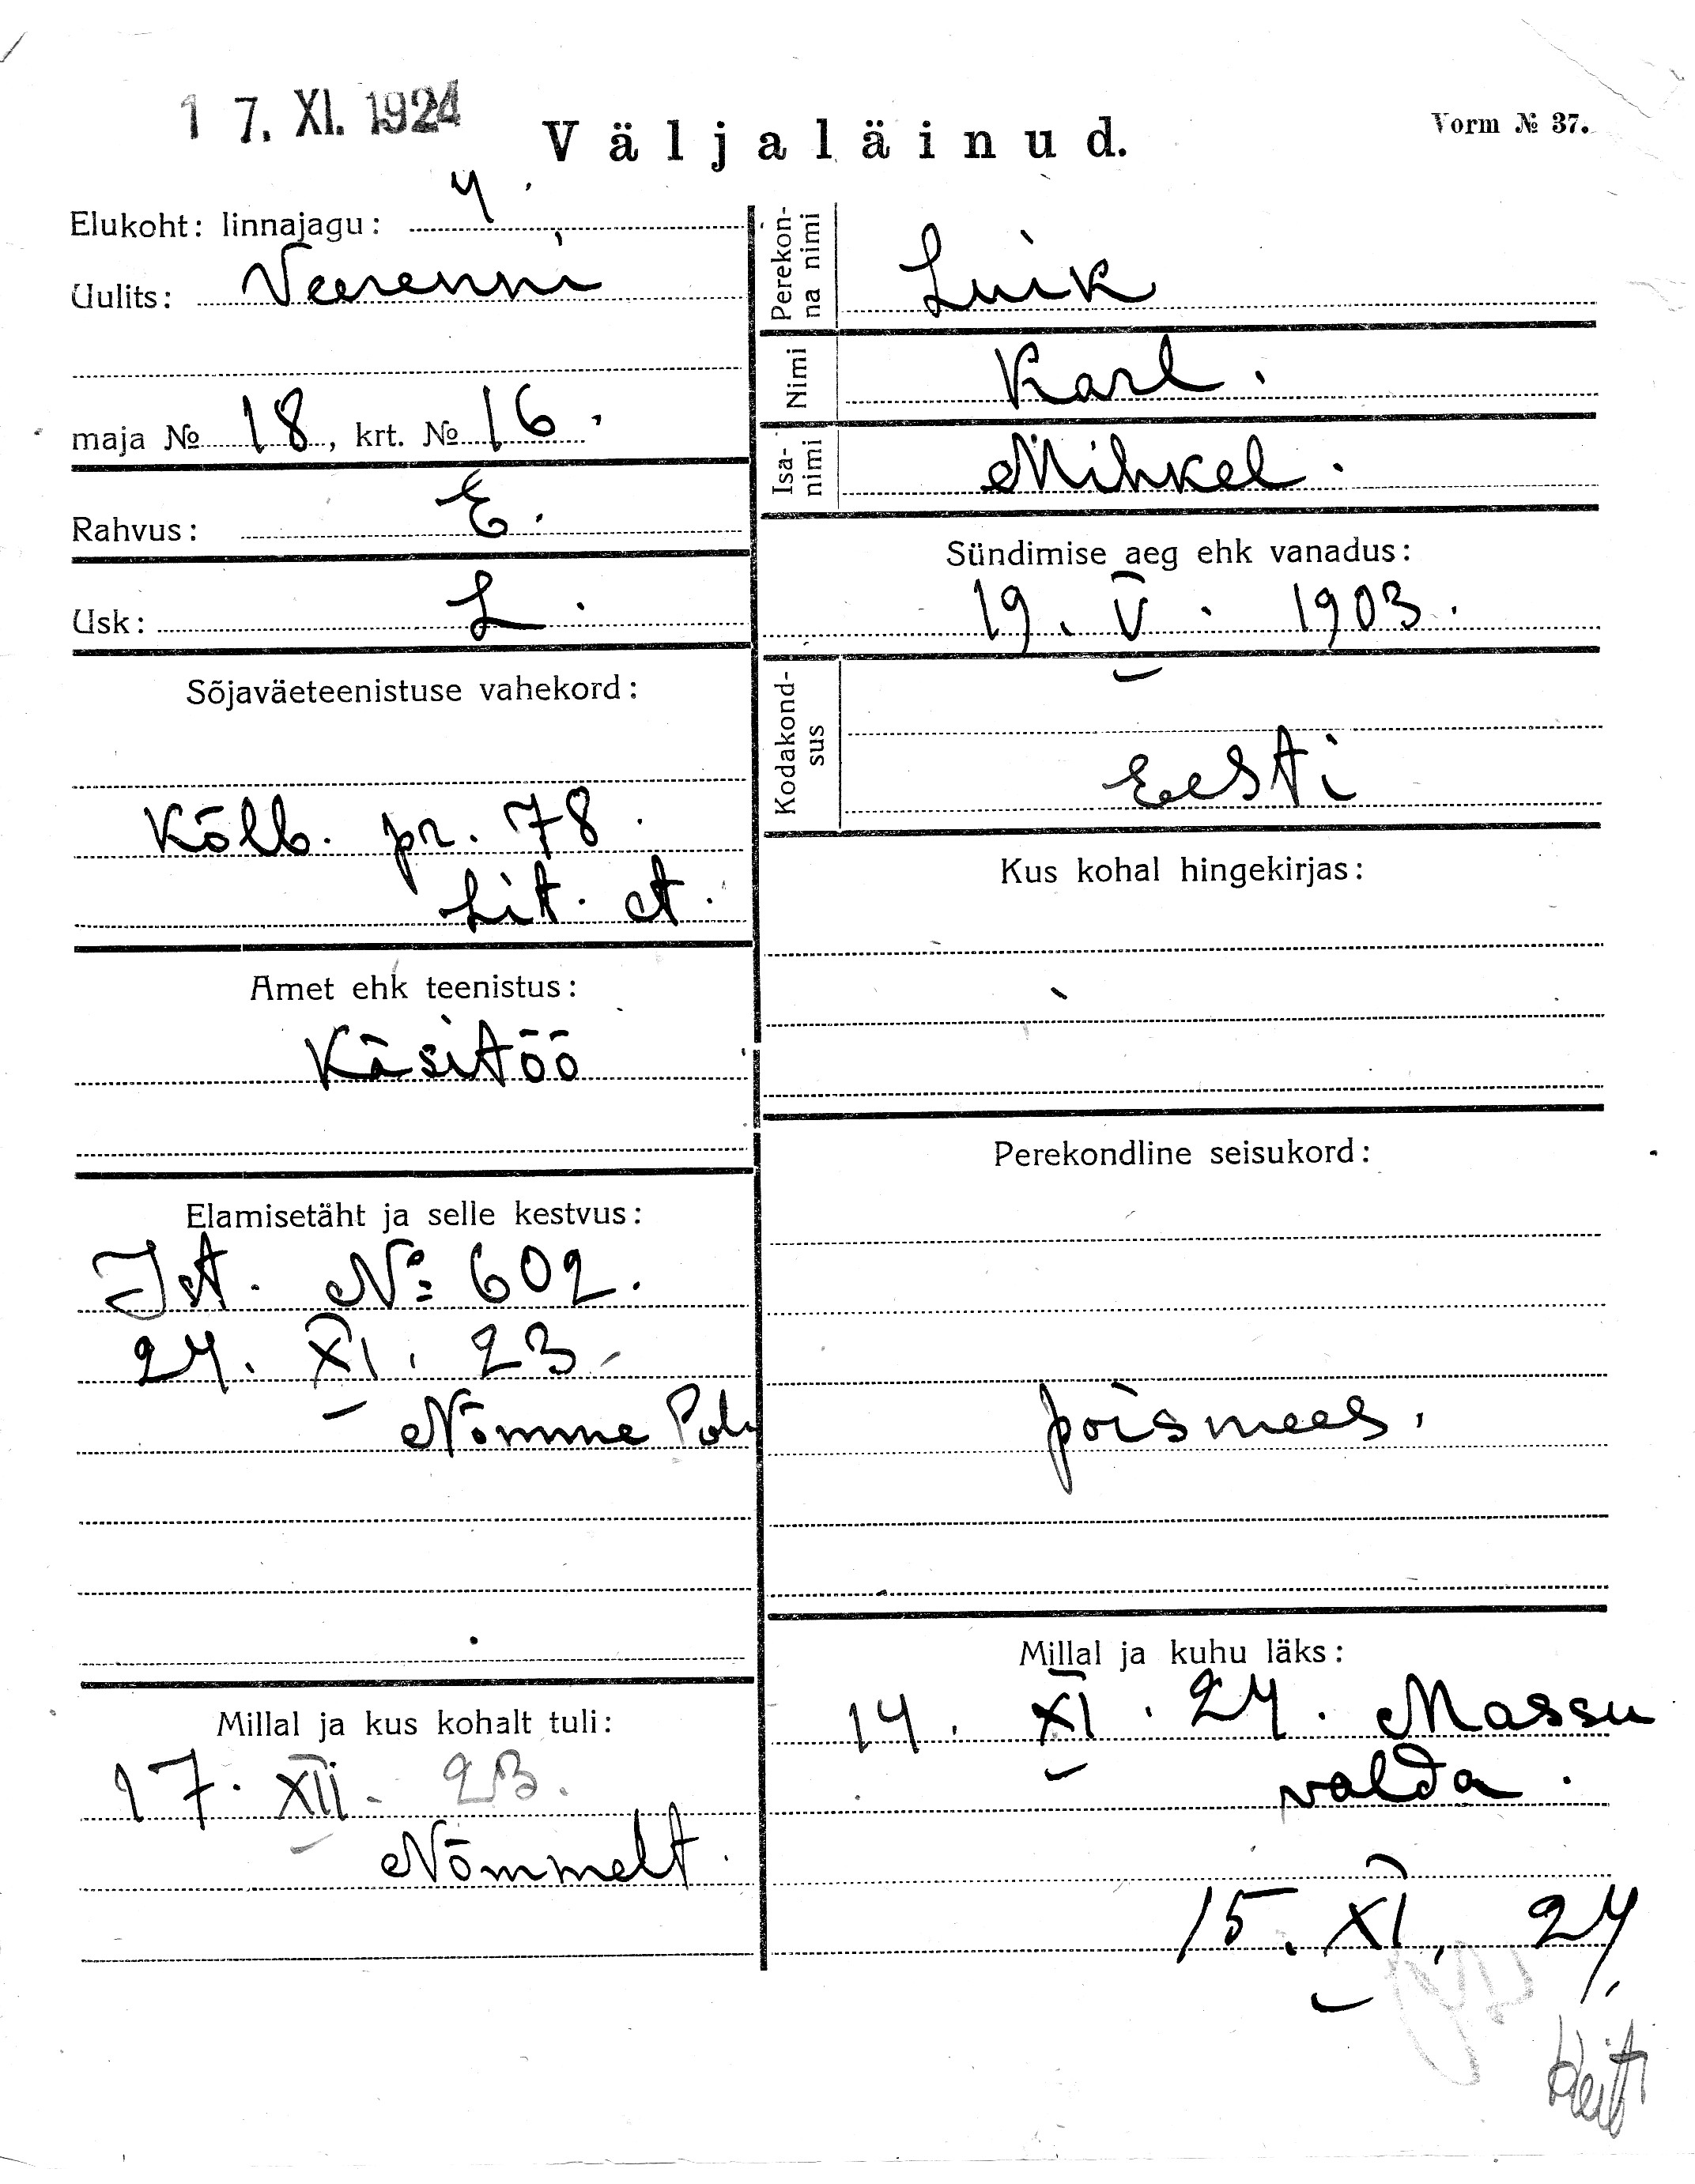 17. XI. 1924
Väljaläinud.
Vorm № 37.
Elukoht: linnajagu: 4.
Uulits: Veerenni
maja № 18, krt. № 16.
Rahvus: E.
Usk: L.
Sõjaväeteenistuse vahekord:
Kõlb. pr. 78.
Lit. A.
Amet ehk teenistus:
Käsitöö
Elamisetäht ja selle kestvus:
IA. № 602.
24. XI. 23.
Nõmme Pol.
Millal ja kus kohalt tuli:
17. XII. 23.
Nõmmelt.
Perekonna nimi
Luik
Nimi
Karl.
Isanimi
Mihkel.
Sündimise aeg ehk vanadus:
19. V. 1903.
Kodakondsus
Eesti
Kus kohal hingekirjas:
Perekondline seisukord:
poismees.
Millal ja kuhu läks:
14. XI. 24. Massu
valda.
15. XI. 24.